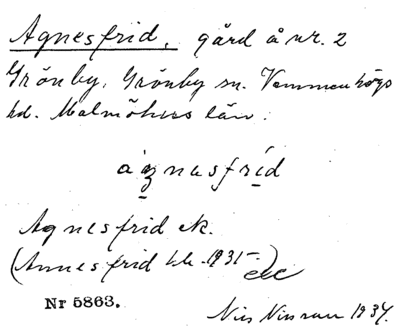 Agnesfrid, gård å nr. 2
Grönby, Grönby sn. Vemmenhögs
hd. Malmöhus län.
ágnasfríd
Agnesfrid ek.
(Annesfrid bl. 1931
Nr 5863.
Nils Nilsson 1934.